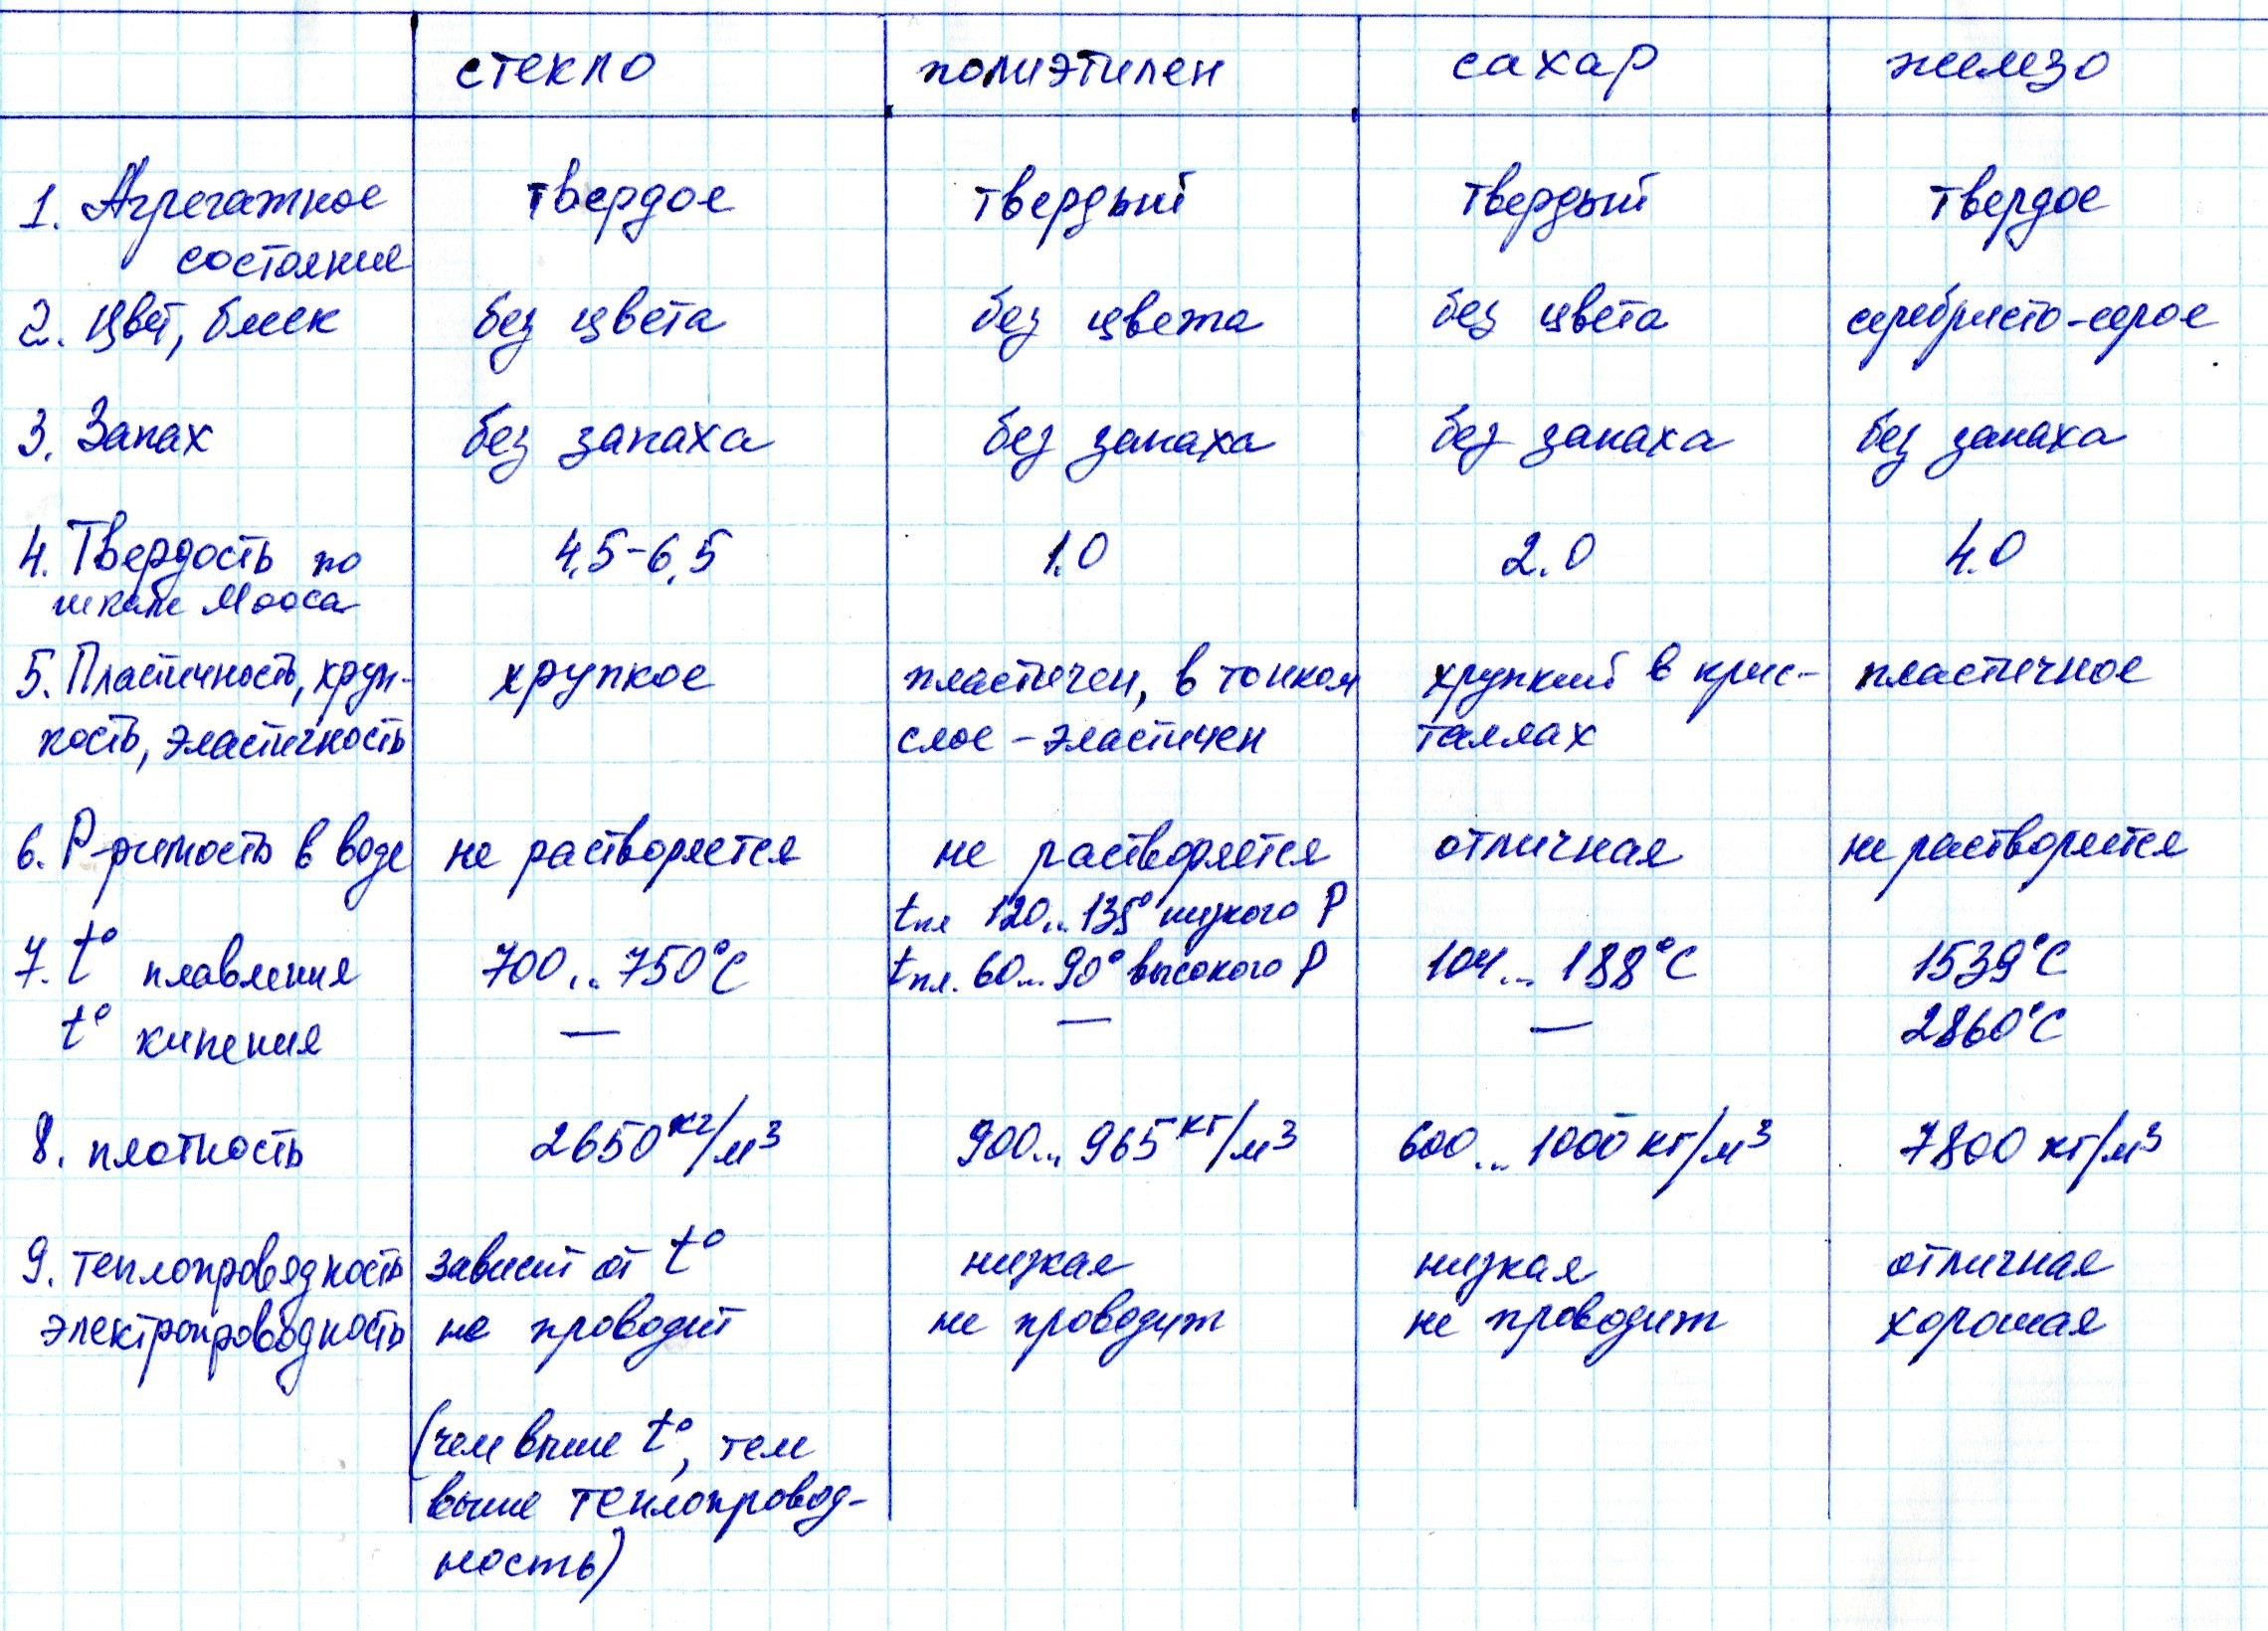 стекло полиэтилен сахар железо
1. Агрегатное твердое твердый твердый твердое
состояние
2. Цвет, блеск без цвета без цвета без цвета серебристо-серое
3. Запах без запаха без запаха без запаха без запаха
4. Твердость по 4,5-6,5 1.0 2.0 4.0
шкале Мооса
5. Пластичность, хруп- хрупкое пластичен, в тонком хрупкий в крис- пластичное
кость, эластичность слое - эластичен таллах
6. Р-римость в воде не растворяется не растворяется отличная не растворяется
tпл 120...135° низкого P
7. t° плавления 700...750°C tпл. 60...90° высокого P 104...188°C 1539°C
t° кипения — — — 2860°C
8. плотность 2650 кг/м³ 900...965 кг/м³ 600...1000 кг/м³ 7800 кг/м³
9. теплопроводность зависит от t° низкая низкая отличная
электропроводность не проводит не проводит не проводит хорошая
(чем выше t°, тем
выше теплопровод-
ность)